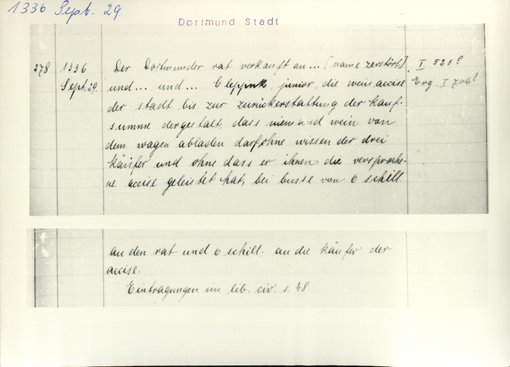 1336 Sept. 29
Dortmund Stadt
278 1336 Der Dortmunder rat verkauft an ... [name zerstört] I 528?
Sept. 29. und ... und ... Cleppink junior, die wein accise Erg. I 706?
der stadt bis zur zurückerstattung der kauf-
summe dergestalt, dass niemand wein von
dem wagen abladen darf ohne wissen der drei
käufer und ohne dass er ihnen die versproche-
ne accise geleistet hat, bei busse von 6 schill.
an den rat und 6 schill. an die käufer der
accise.
Eintragungen im lib. civ. s. 48